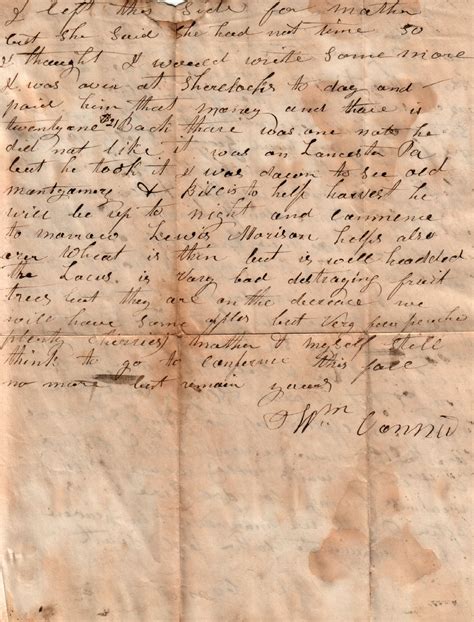 I left this Side for mother
but She Said She had not time So
I thought I would write Some more
I was over at Sherelocks to day and
paid him that money and thare is
twentyone $21 Back thare was one note he
did not like it was on Lancester Pa
but he took it I was dawn to see old
mantgamery & Bill is to help harvest he
will be up to night and commence
to morrow Lewis Morison helps also
our Wheat is thin but is well headded
The Locus is Very bad distraying fruit
trees but they are on the decreace we
will have Some but Very few peache
plenty Cherries mother & myself Still
think to go to conference this fall
no more but remain yours
Wm